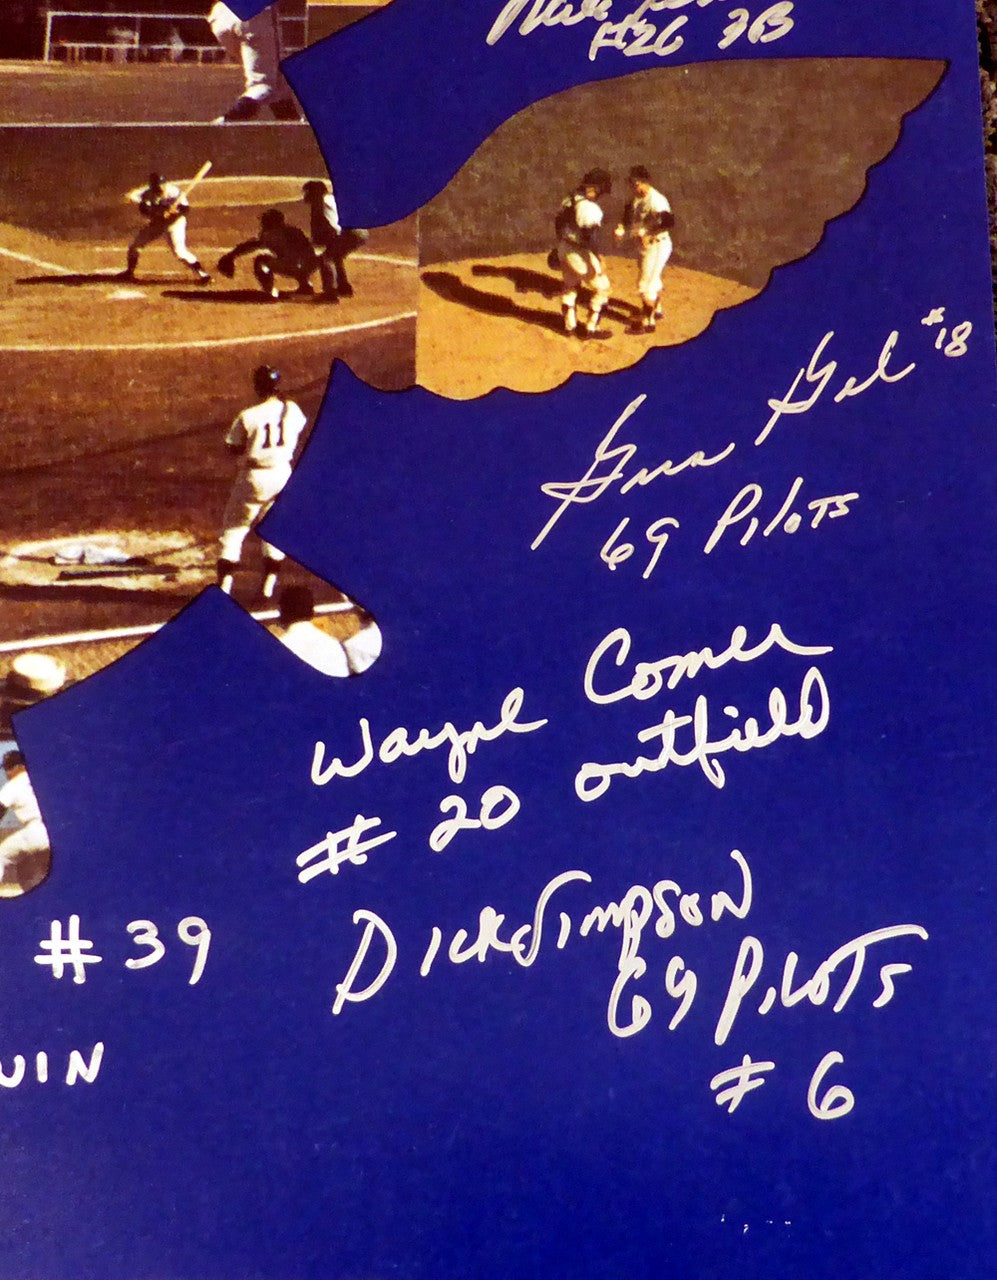 #26 3B
Gus Gil #18
69 PILOTS
11
Wayne Comer
# 20 outfield
#39
DICK SIMPSON
69 PILOTS
# 6